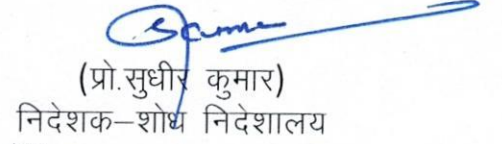 (प्रो.सुधीर कुमार)
निदेशक–शोध निदेशालय